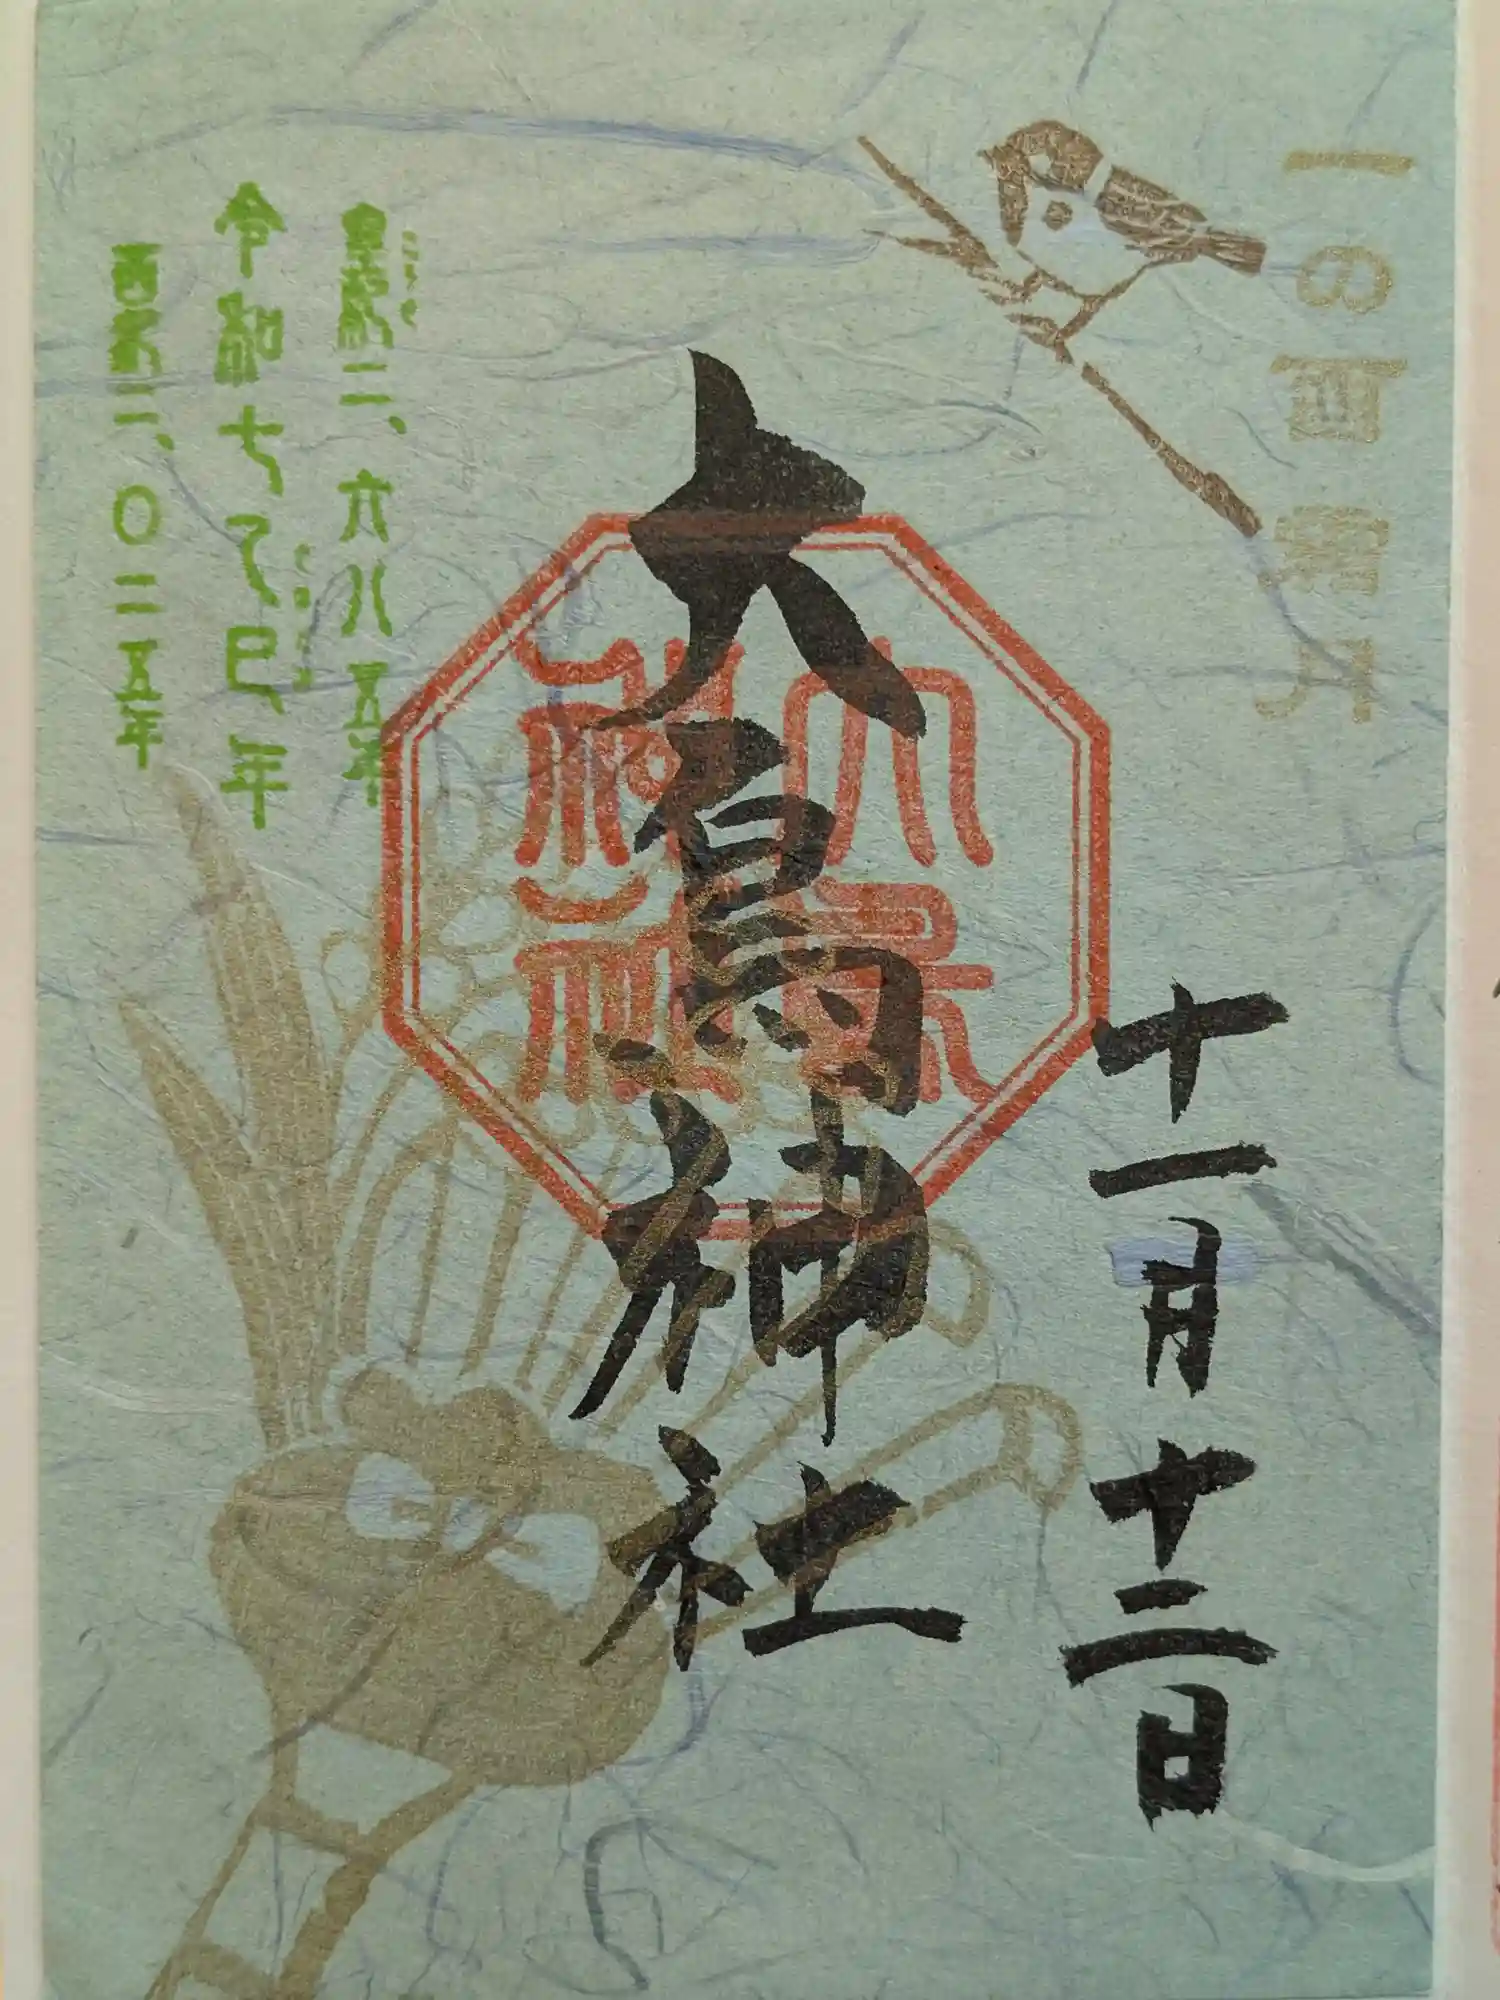 一の酉
十一月十二日
大鳥神社
大鳥
神社
皇紀二、六八五年
こうき
令和七乙巳年
西暦二、〇二五年